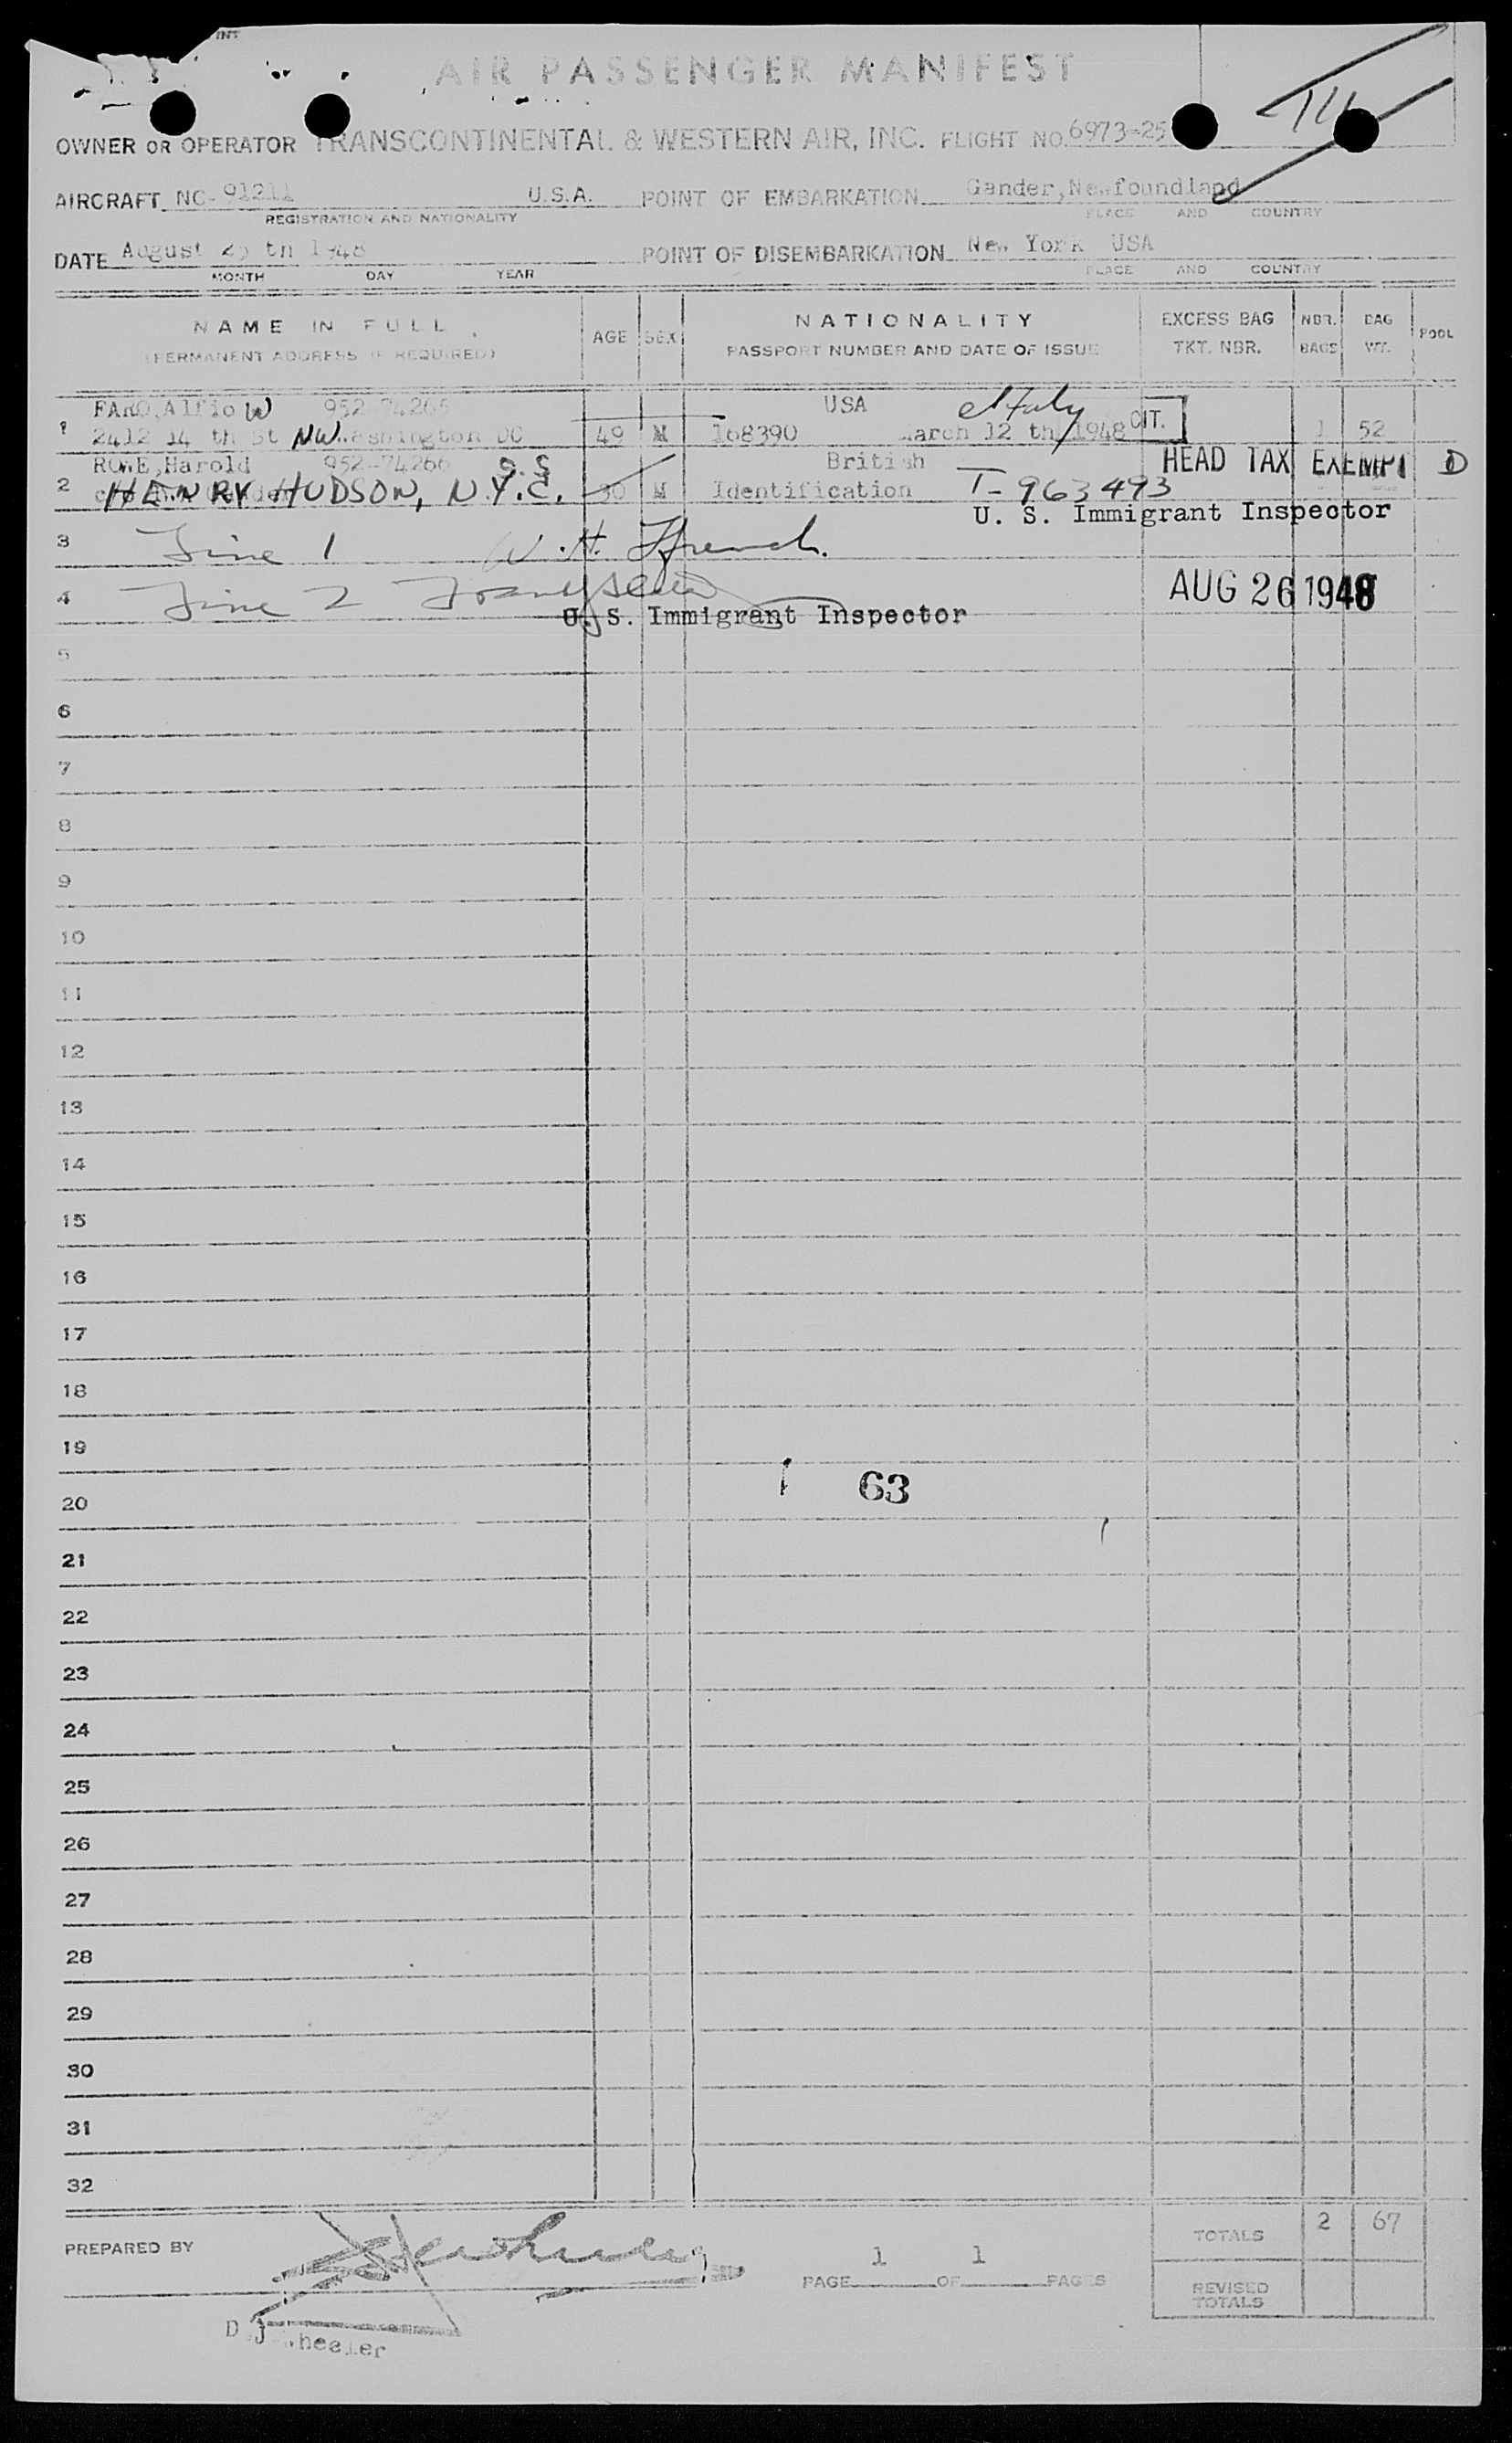 AIR PASSENGER MANIFEST
OWNER OR OPERATOR TRANSCONTINENTAL & WESTERN AIR, INC. FLIGHT NO. 6973-25
AIRCRAFT NC-91211 U.S.A. POINT OF EMBARKATION Gander, Newfoundland
REGISTRATION AND NATIONALITY PLACE AND COUNTRY
DATE August 25 th 1948 POINT OF DISEMBARKATION New York USA
MONTH DAY YEAR PLACE AND COUNTRY
NAME IN FULL AGE SEX NATIONALITY EXCESS BAG NBR. BAG POOL
(PERMANENT ADDRESS IF REQUIRED) PASSPORT NUMBER AND DATE OF ISSUE TKT. NBR. BAGS WT.
FARO, Alfio W 952-74265 USA Italy CIT.
1 2412 14 th St NW Washington DC 49 M 168390 March 12 th 1948 1 52
ROWE, Harold 952-74266 S.S British HEAD TAX EXEMPT D
2 HENRY HUDSON, N.Y.C. 30 M Identification T-963493
U. S. Immigrant Inspector
3 Line 1 W. H. Ffrench.
4 Line 2 AUG 26 1948
U. S. Immigrant Inspector
5
6
7
8
9
10
11
12
13
14
15
16
17
18
19
63
20
21
22
23
24
25
26
27
28
29
30
31
32
TOTALS 2 67
PREPARED BY
PAGE 1 OF 1 PAGES
REVISED TOTALS
D J Wheeler